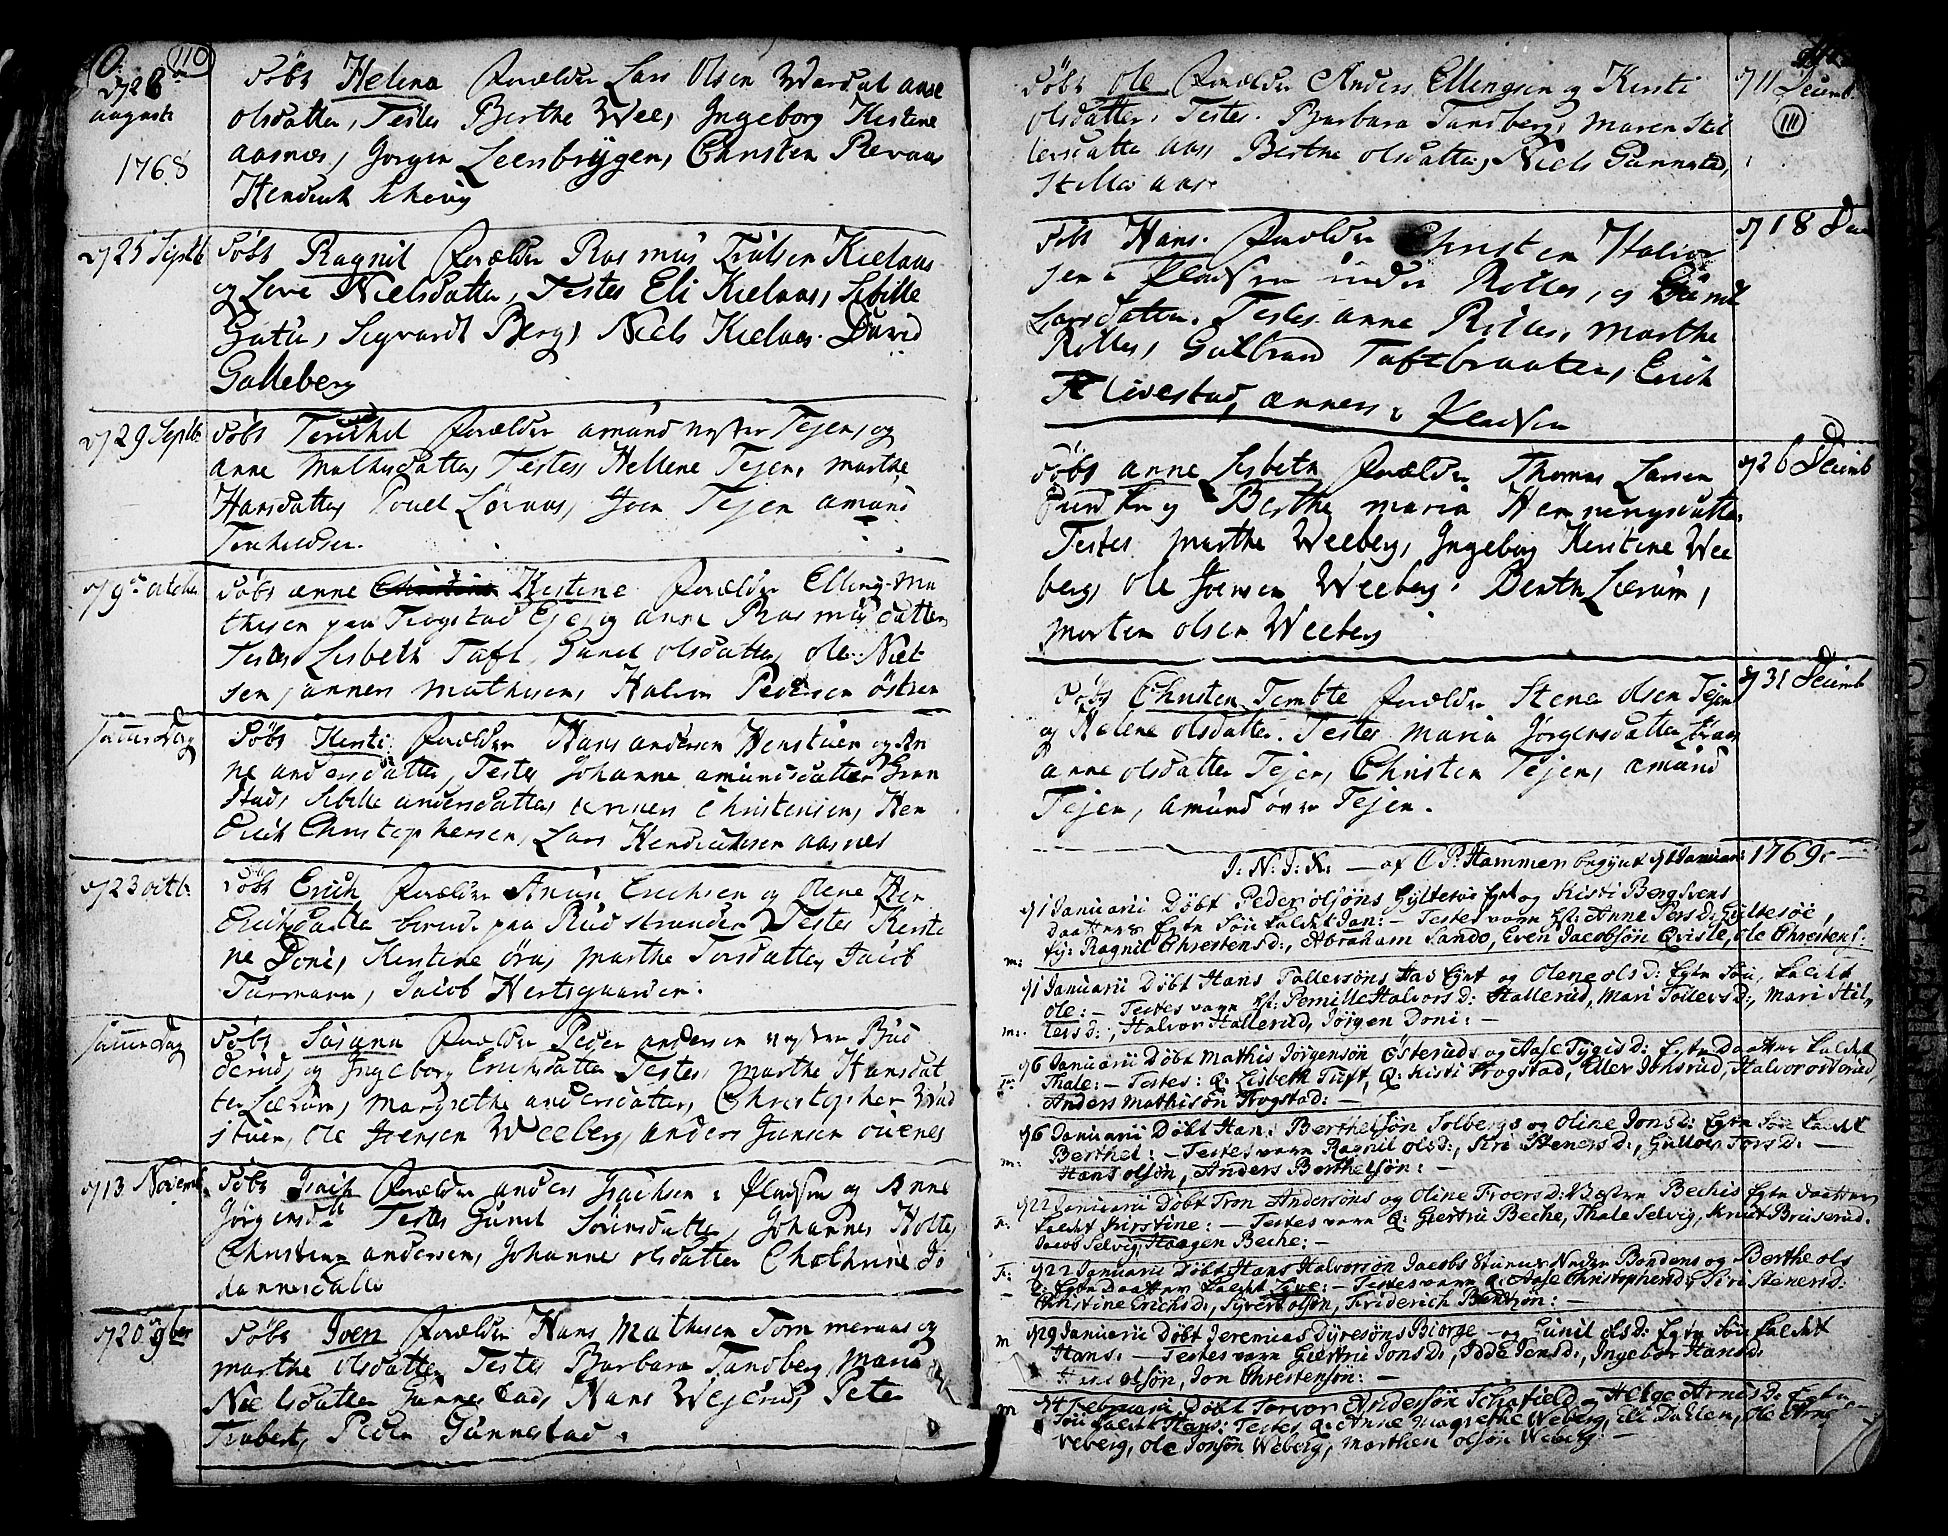 110
28
augusti
1768
Døbt Helena forælder Lars Olsen Wardal anne
olsdatter, Testes Berthe Wee, Ingeborg Kirstine
aasnæs, Jørgen Leenbrygen, Christen Revaas
Hendrich
25 Septb
Døbt Ragnil forælder Rasmus Trulsen Kielaas
og Live Nielsdatter, Testes Eli Kielaas, Sibille
Gutu, Sigvardt Berg, Niels Kielaas David
Galleberg
29 Septb
Døbt Terichel forælder amund Tejen, og
anne Mathisdatter Testes Hellene Tejen, marthe
Hansdatter Povel Løvaas, Joen Tejen amund
9 october
Døbt anne Christine Kirstine forælder Elling Ma
thesen paa Trogstad Eje og anne Rasmusdatter
Testes Lisbeth Tuft, Gunil olsdatter ole Niel
sen, anners Mathisen, Halvor Pedersen østren
samme Dag
Døbt Kirsti forælder Hans andersen Henstuen og An
ne andersdatter, Testes Johanne amundsdatter Grun
stad, Sibille andersdatter anners Christensen, Hen
drich Christophersen, Lars Hendrichsen aasnes
23 octb.
Døbt Erich forælder Erichsen og Olene Hen
drichsdatter paa Rudstranden Testes Kirsti
ne Doni, Kirstine øra, marthe Torsdatter, Jacob
Turmann, Jacob Hertsgaarden.
samme Dag
Døbt Susanna forælder Peder andersen Bud
derud, og Ingeborg Erichsdatter Testes, marthe Hansdat
ter Lærum, margrethe andersdatter, Christopher
stuen, Ole Joensen Weeberg, anders Jansen
13 Novemb.
Døbt Isach forælder anders Isachsen i Pladsen og Anne
Jørgensd. Testes Gunil Sørensdatter, Johannes Holtes
Christen andersen, Johanne olsdatter Chathrine Jo
hannesdatter
20 9ber
Døbt Joen forælder Hans Mathesen Tommeraas og
marthe olsdatter Testes Barbara Tandberg, Maria
Nielsdatter Gunnestad, Hans Wejerud, Peter
Trabert, Peder Gunnestad.
111
Døbt ole forælder Anders Ellingsen og Kirsti
olsdatter. Testes. Barbara Tandberg, Maren Stil
lersdatter aas, Berthe olsdatter, Niels Gunnestad,
Stiller aas.
11 Decemb.
Døbt Hans. forælder Christen Halvor
sen i Pladsen under Rolles, og Gunil
Larsdatter. Testes anne Rolles, marthe
Rolles, Gulbrand Tuftbraaten, Erich
Klivestad, anners i Pladsen
18 Dec
Døbt anne Lisbeth forælder Thomas Larsen
og Berthe maria Henningsdatter
Testes marthe Weeberg, Ingeborg Kirstine Wee
berg, Ole Joensen Weeberg, Lærum,
Morten olsen Weeberg
26 Decemb
Døbt Christen Tembte forælder Stener olsen Tejen
og Helene olsdatter. Testes Maria Jørgensdatter
anne olsdatter Tejen, Christen Tejen, amund
Tejen, amund øvre Tejen.
31 Decemb
I. N. J. X. — af O P: Hammer begynt 1 Januar: 1769. —
1 Januarii Døbt Peder olsøns Gyltesøe og Kirsti Bergsvens
Daatters Søn kaldet Jan: — Testes vare Anne Persd: Gyltesøe,
Ragnil Chrestensd:, Abraham Sando, Even Jacobsøn Qvisle, Ole Chrestens:
m:
1 Januarii Døbt Hans Tollersøns Aas og Olene olsd: Søn, kaldt
Ole: — Testes vare Pernille Halvorsd: Hallerud, Mari Tollersd:, Mari Stil
lersd:, Halvor Hallerud, Jørgen Doni: —
m:
6 Januarii Døbt Mathis Jørgensøn Østeruds og Aase Tygisd: Daatter kaldt
Thale: — Testes: Q: Lisbeth Tuft, Q: Kisti Trogstad, Eller Johsrud, Halvor Østerud,
Anders Mathisøn Trogstad: —
6 Januarii Døbt Han: Berthelsøn Solbergs og Oline Jonsd: Søn kaldt
Berthel: — Testes vare Ragnil olsd:, Siri Stenersd:, Gulloug Torsd: —
Hans olsøn, Anders Berthelsøn: —
m:
22 Januarii Døbt Tron Andersøns og Oline Troersd: Bechis Daatter
kaldt Kirstine: — Testes vare Q: Giertru Beche, Thale Selvig, Knut Bruserud.
Jacob Selvig, Haagen Beche: —
22 Januarii Døbt Hans Halvorsøn Jacobs Stuens Bondens og Berthe ols
D: Daatter kaldt Live: — Testes vare Q: Aase Christophersd:, Siri Stenersd:
Christine Erichsd:, Syvert olsøn, Friderich Bentsøn: —
29 Januarii Døbt Jeremias Dyresøns Biorge — og Gunil olsd: Søn kaldt
Hans: — Testes vare Giertru Jonsd:, Idde Jensd:, Ingebor Hansd:
olsøn, Jon Chrestensøn: —
m
4 Februarii Døbt Torvor Andersøn — Helge Arnesd:
Søn kaldt Hans: Testes Q: Anne Magrethe Weberg, Eli Dahlen, Ole
Veberg, Ole Jonsøn Weberg, Marthen olsøn Weberg: —
m